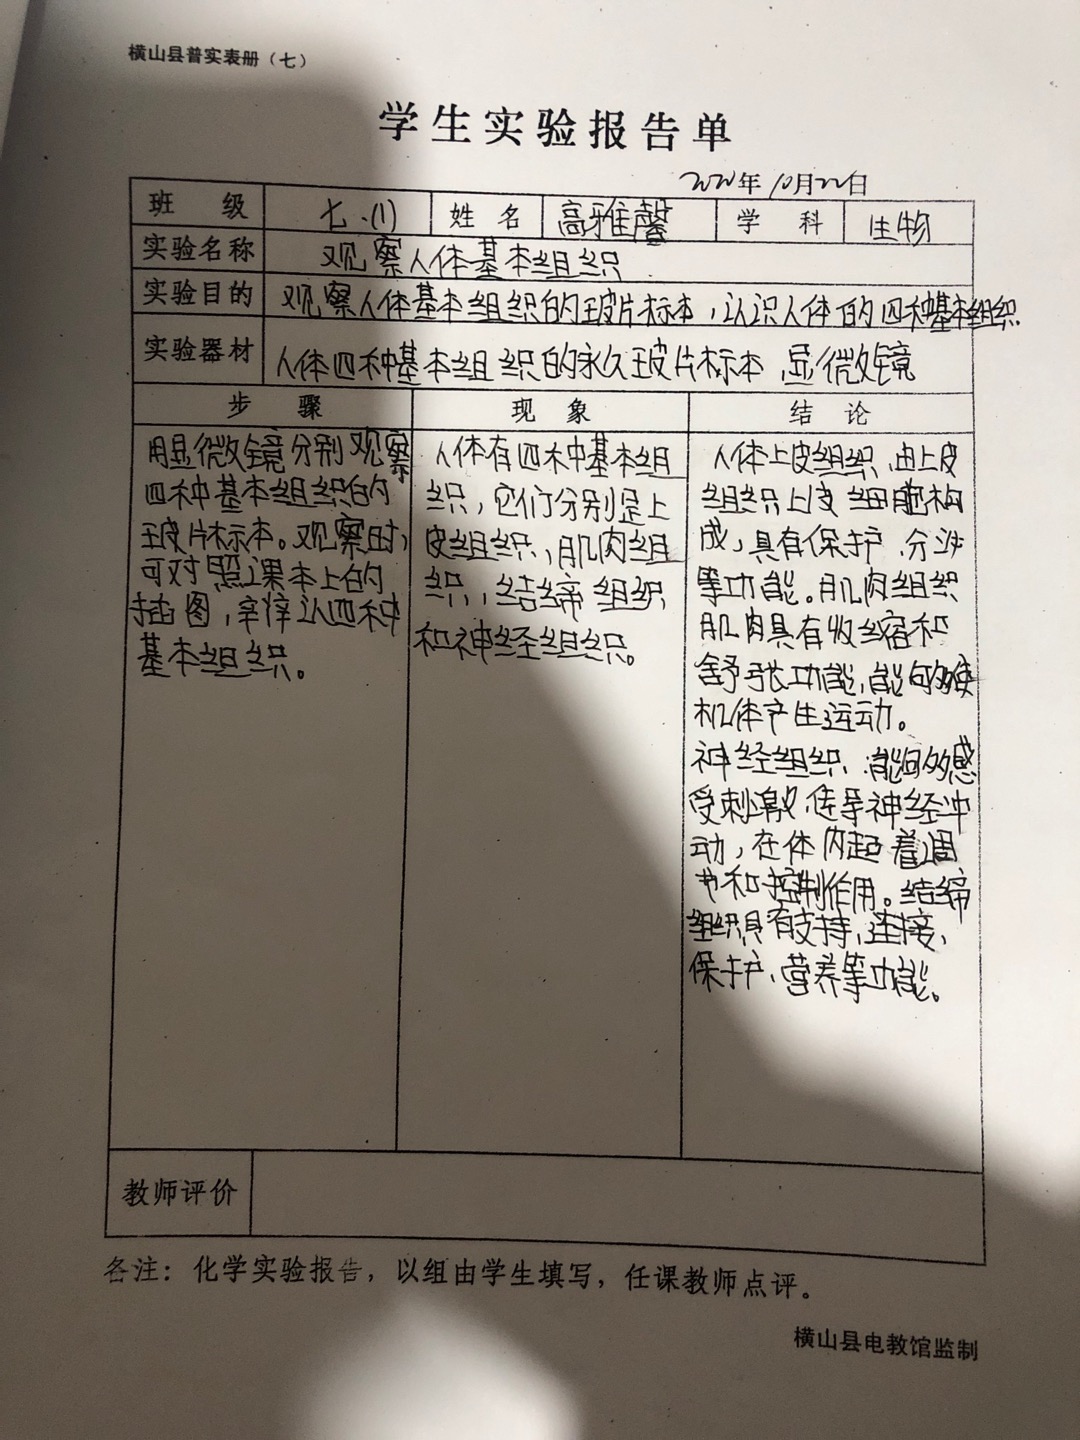 横山县普实表册（七）
学生实验报告单
2022年10月22日
班 级 七.(1) 姓 名 高雅馨 学 科 生物
实验名称 观察人体基本组织
实验目的 观察人体基本组织的玻片标本，认识人体的四种基本组织
实验器材 人体四种基本组织的永久玻片标本、显微镜
步 骤
用显微镜分别观察
四种基本组织的
玻片标本。观察时，
可对照课本上的
插图，辛辛认四种
基本组织。
现 象
人体有四种基本组
织，它们分别是上
皮组织，肌肉组
织，结缔组织
和神经组织。
结 论
人体上皮组织、由上皮
组织上皮细胞构
成，具有保护、分泌
等功能。肌肉组织
肌肉具有收缩和
舒张功能，能够使
机体产生运动。
神经组织、能够感
受刺激，传导神经冲
动，在体内起着调
节和控制作用。结缔
组织具有支持，连接，
保护、营养等功能。
教师评价
各注：化学实验报告，以组由学生填写，任课教师点评。
横山县电教馆监制